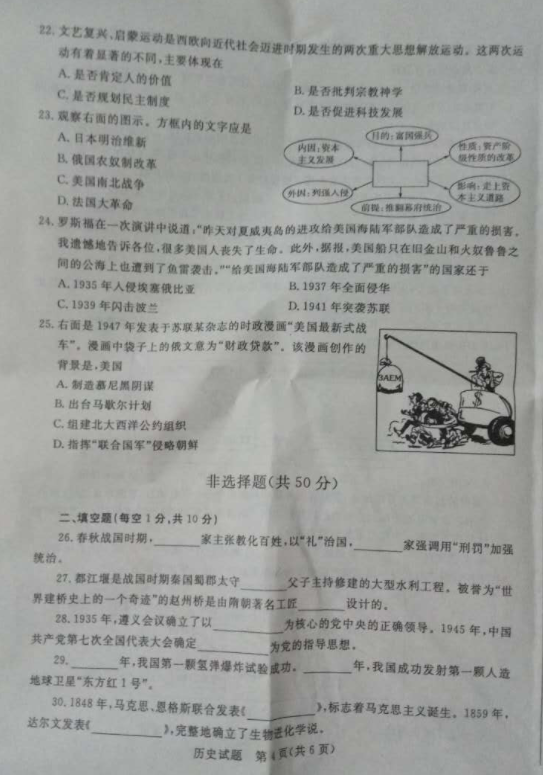 22. 文艺复兴、启蒙运动是西欧向近代社会迈进时期发生的两次重大思想解放运动。这两次运
动有着显著的不同,主要体现在
A. 是否肯定人的价值
B. 是否批判宗教神学
C. 是否规划民主制度
D. 是否促进科技发展
23. 观察右面的图示。方框内的文字应是
A. 日本明治维新
B. 俄国农奴制改革
C. 美国南北战争
D. 法国大革命
目的:富国强兵
内因:资本
主义发展
性质:资产阶
级性质的改革
外因:列强入侵
影响:走上资
本主义道路
前提:推翻幕府统治
24. 罗斯福在一次演讲中说道:“昨天对夏威夷岛的进攻给美国海陆军部队造成了严重的损害。
我遗憾地告诉各位,很多美国人丧失了生命。此外,据报,美国船只在旧金山和火奴鲁鲁之
间的公海上也遭到了鱼雷袭击。”“给美国海陆军部队造成了严重的损害”的国家还于
A. 1935 年入侵埃塞俄比亚
B. 1937 年全面侵华
C. 1939 年闪击波兰
D. 1941 年突袭苏联
25. 右面是 1947 年发表于苏联某杂志的时政漫画“美国最新式战
车”。漫画中袋子上的俄文意为“财政贷款”。该漫画创作的
背景是,美国
A. 制造慕尼黑阴谋
B. 出台马歇尔计划
C. 组建北大西洋公约组织
D. 指挥“联合国军”侵略朝鲜
ЗАЕМ
$
非选择题(共 50 分)
二、填空题(每空 1 分,共 10 分)
26. 春秋战国时期,______家主张教化百姓,以“礼”治国,______家强调用“刑罚”加强
统治。
27. 都江堰是战国时期秦国蜀郡太守______父子主持修建的大型水利工程。被誉为“世
界建桥史上的一个奇迹”的赵州桥是由隋朝著名工匠______设计的。
28. 1935 年,遵义会议确立了以______为核心的党中央的正确领导。1945 年,中国
共产党第七次全国代表大会确定______为党的指导思想。
29. ______年,我国第一颗氢弹爆炸试验成功。______年,我国成功发射第一颗人造
地球卫星“东方红 1 号”。
30. 1848 年,马克思、恩格斯联合发表《______》,标志着马克思主义诞生。1859 年,
达尔文发表《______》,完整地确立了生物进化学说。
历史试题 第 4 页(共 6 页)